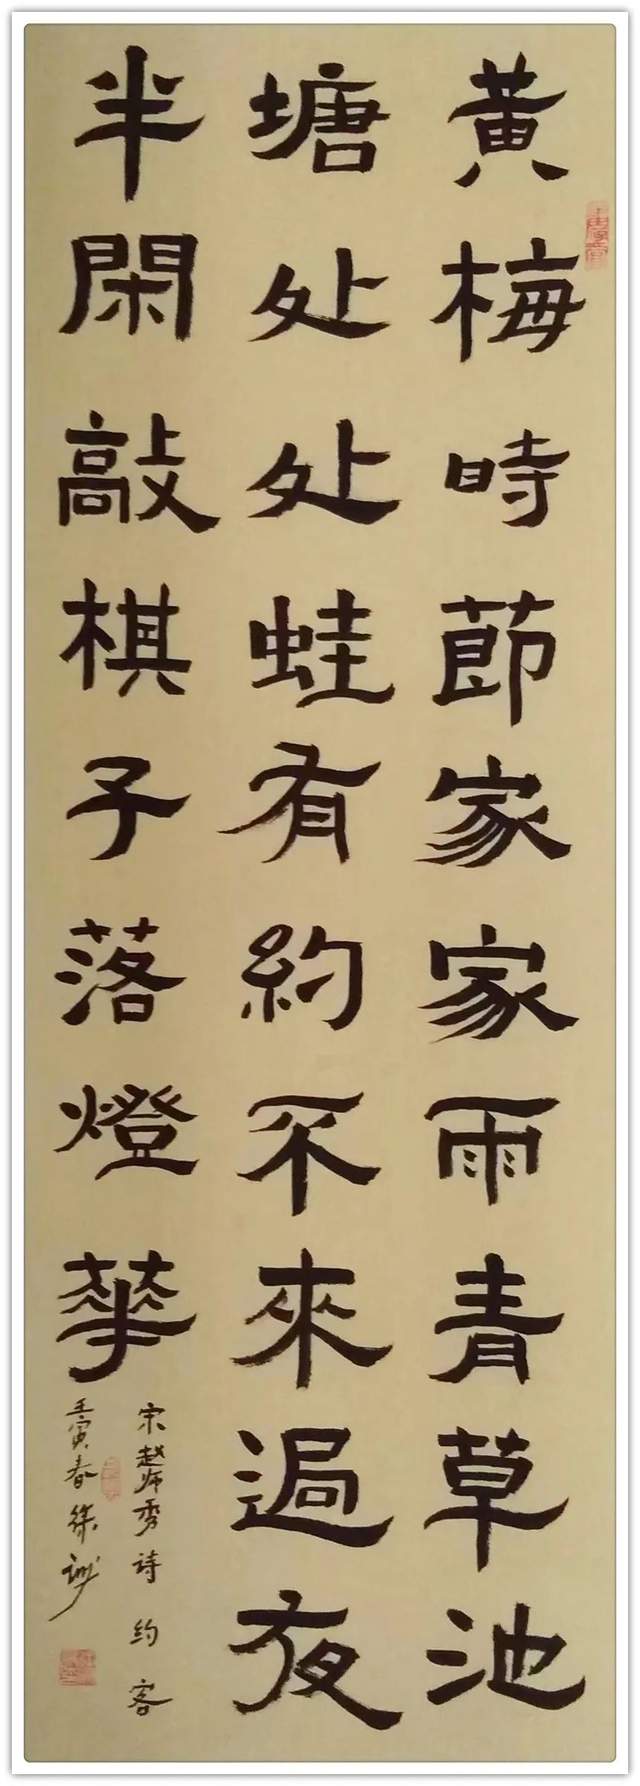 黃梅時節家家雨青草池
塘处处蛙有約不來過夜
半閑敲棋子落燈華
宋趙师秀詩 约客
壬寅春徐